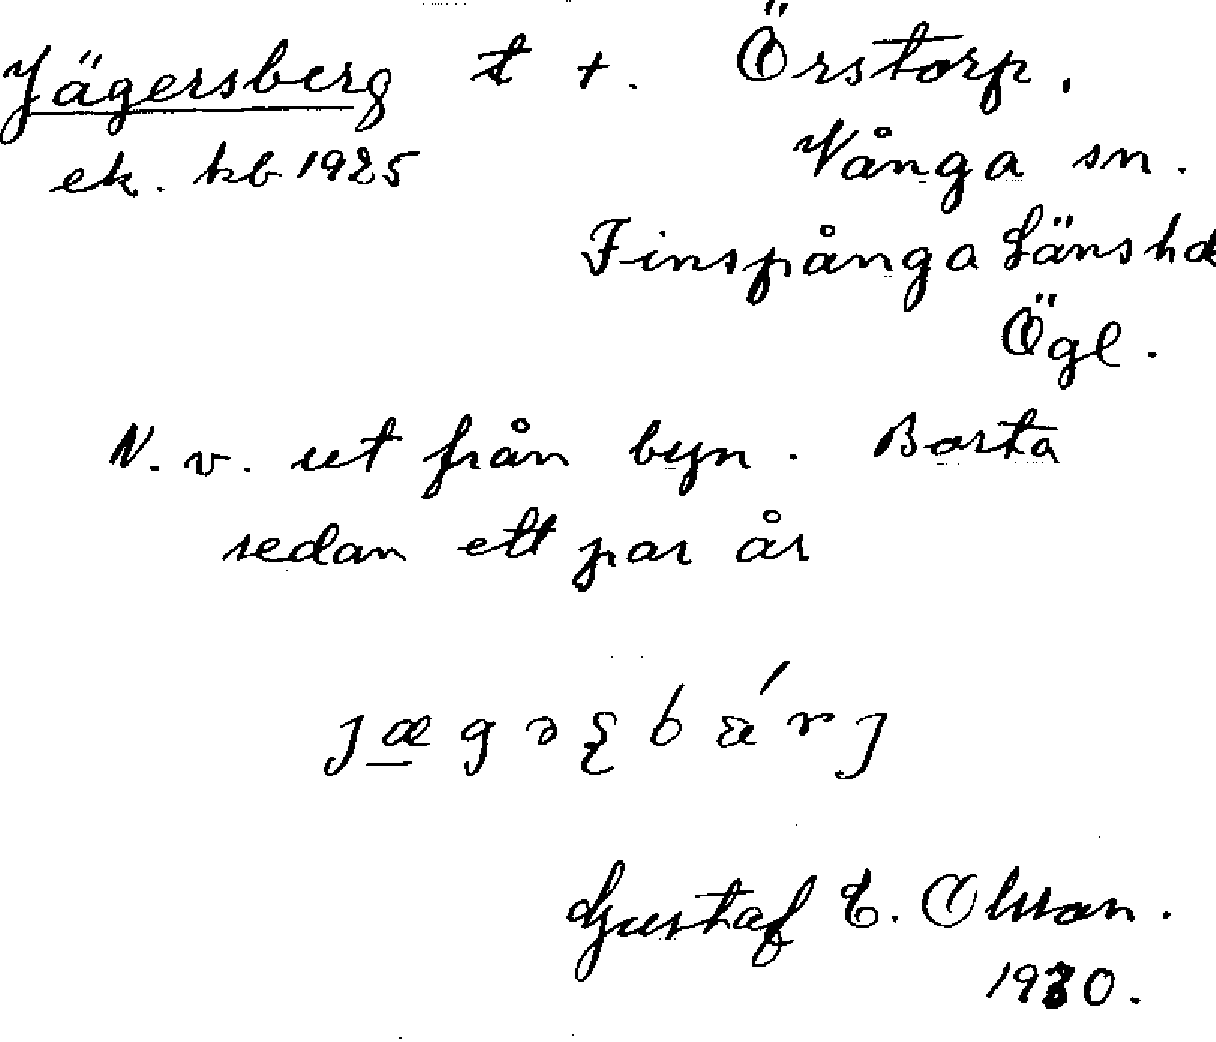 Jägersberg t +. Örstorp.
ek. kb 1925 Vånga sn.
Finspånga Länshd
Ögl.
N. v. ut från byn. Borta
sedan ett par år
Gustaf E. Olsson.
1930.